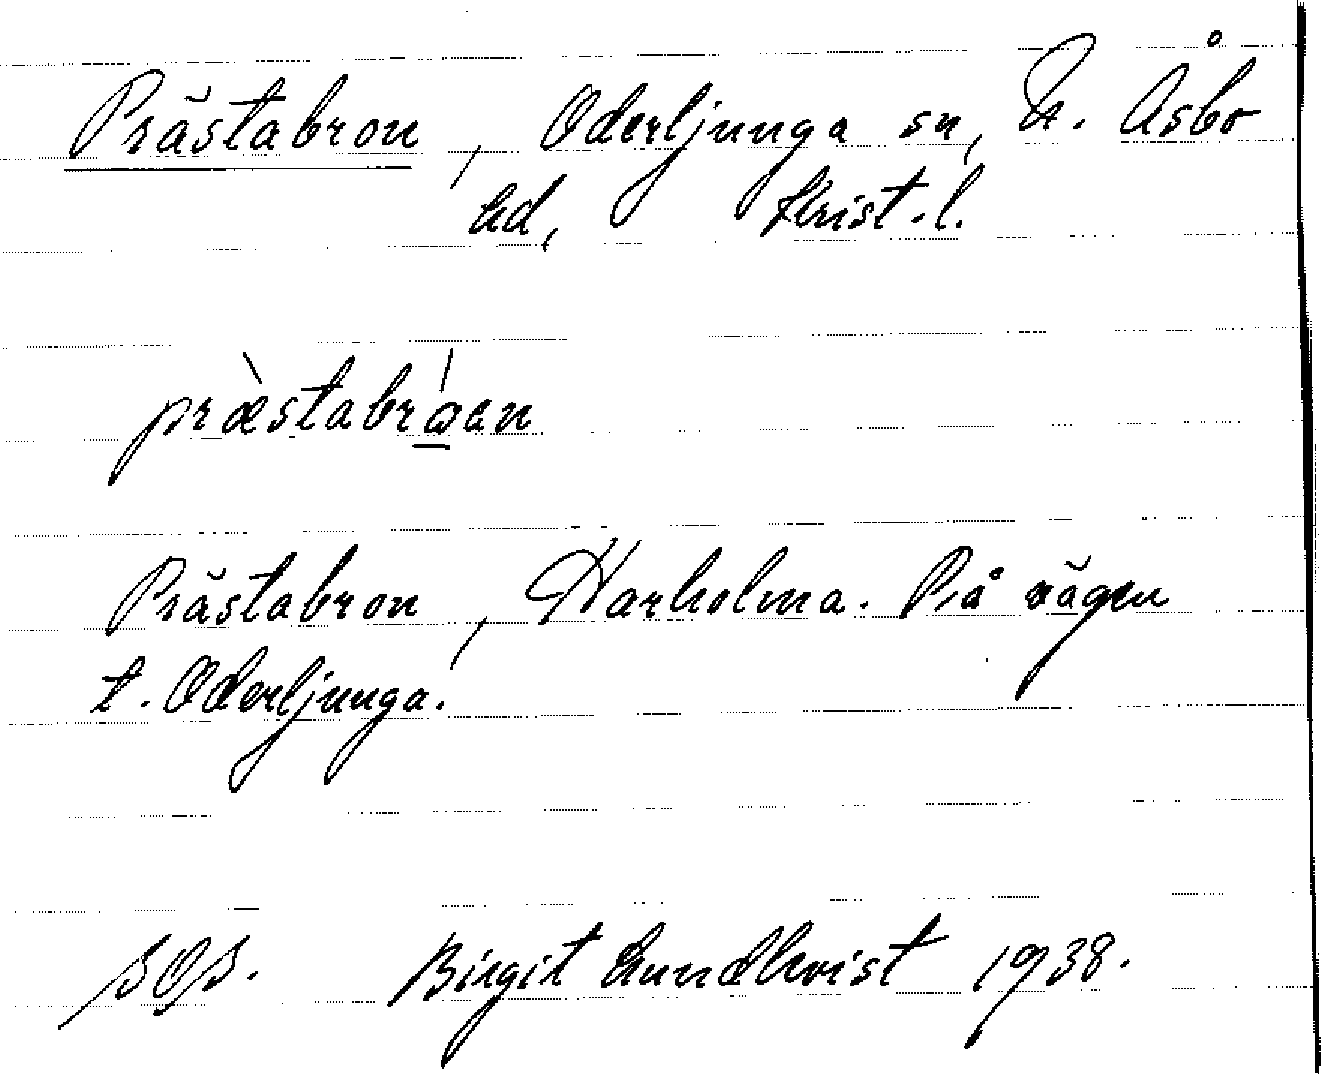 Prästabron, Oderljunga sn, N. Åsbo
hd, Krist.l.
præ̀stabrǫ́an
Prästabron, Harholma. På vägen
t. Oderljunga.
Birgit Lundkvist 1938.